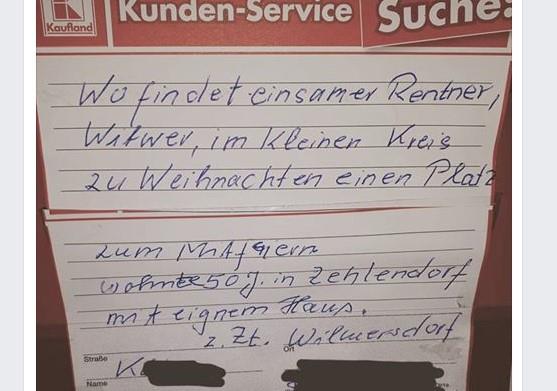 Kaufland
Kunden-Service
Suche:
Wo findet einsamer Rentner,
Witwer, im kleinen Kreis
zu Weihnachten einen Platz
zum Mitfeiern
wohnte 50 J. in Zehlendorf
mit eignem Haus.
z. Zt. Wilmersdorf
Straße
Ort
K
Name